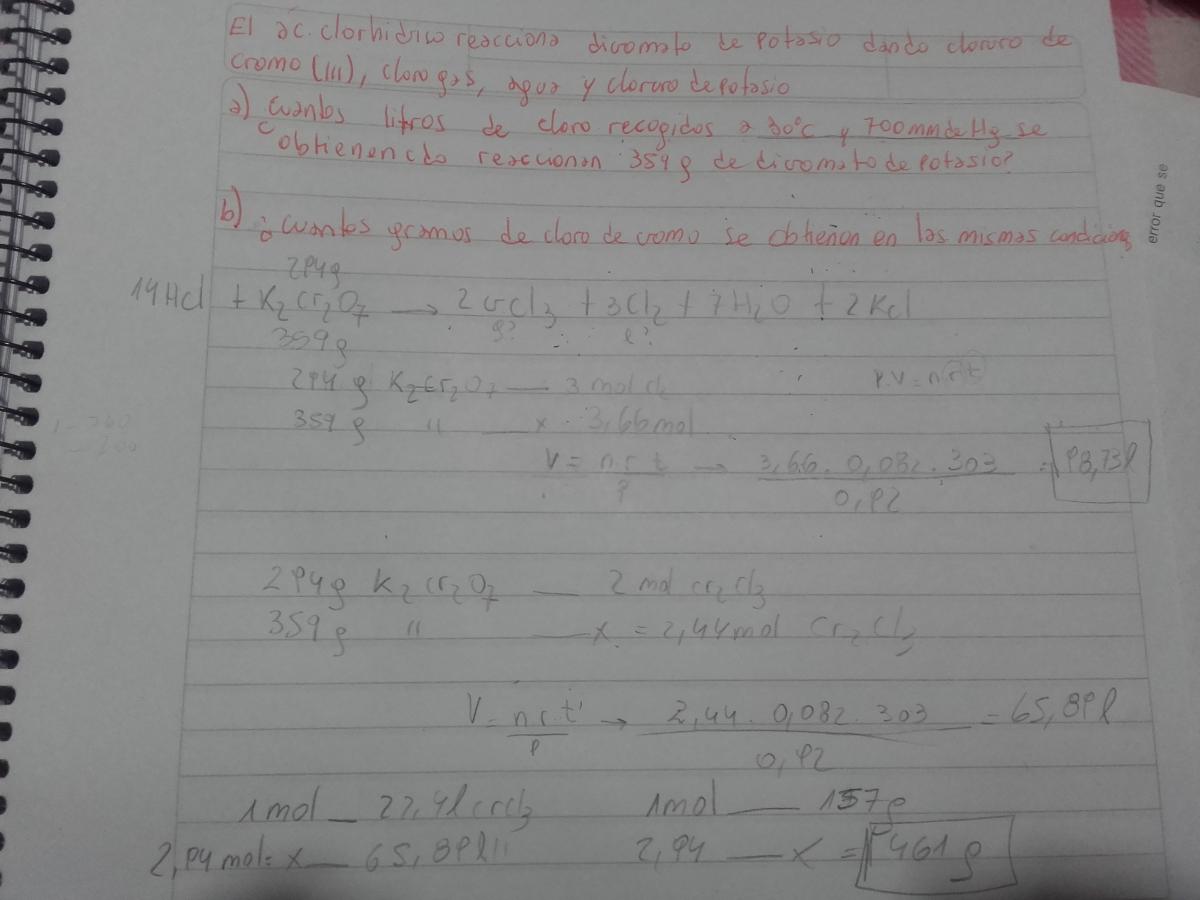 El ac. clorhidrico reacciona dicromato de potasio dando cloruro de
cromo (III), cloro gas, agua y cloruro de potasio
a) Cuantos litros de cloro recogidos a 30°C y 700 mm de Hg se
obtienen cdo reaccionan 359 g de dicromato de potasio?
b) ¿cuantos gramos de cloro de cromo se obtienen en las mismas condiciones
294g
14 Hcl + K2Cr2O7 → 2 CrCl3 + 3Cl2 + 7H2O + 2 Kcl
359 g g? l?
294 g K2Cr2O7 — 3 mol cl2
P.V = n.r.t
359 g " — x 3,66 mol
V = n.r.t / P → 3,66. 0,082. 303 / 0,92 = 98,73 l
294 g K2Cr2O7 — 2 mol cr2Cl3
359 g " — x = 2,44 mol Cr2Cl3
V = n.r.t / P → 2,44. 0,082. 303 / 0,92 = 65,89 l
1 mol — 22,4 l crcl3 1 mol — 157 g
2,94 mol = x — 65,89 l " 2,94 — x = 461 g
error que se